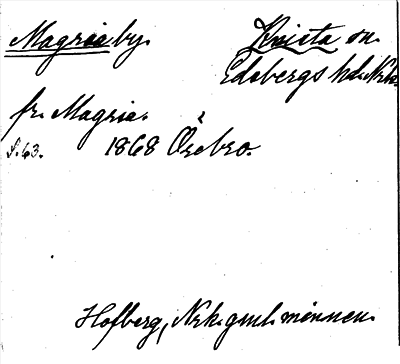 Magriaby. Kvista sn.
Edsbergs hd. Nrke.
fr. Magria.
s. 63. 1868 Örebro.
Hofberg, Nrk. gml. minnen.